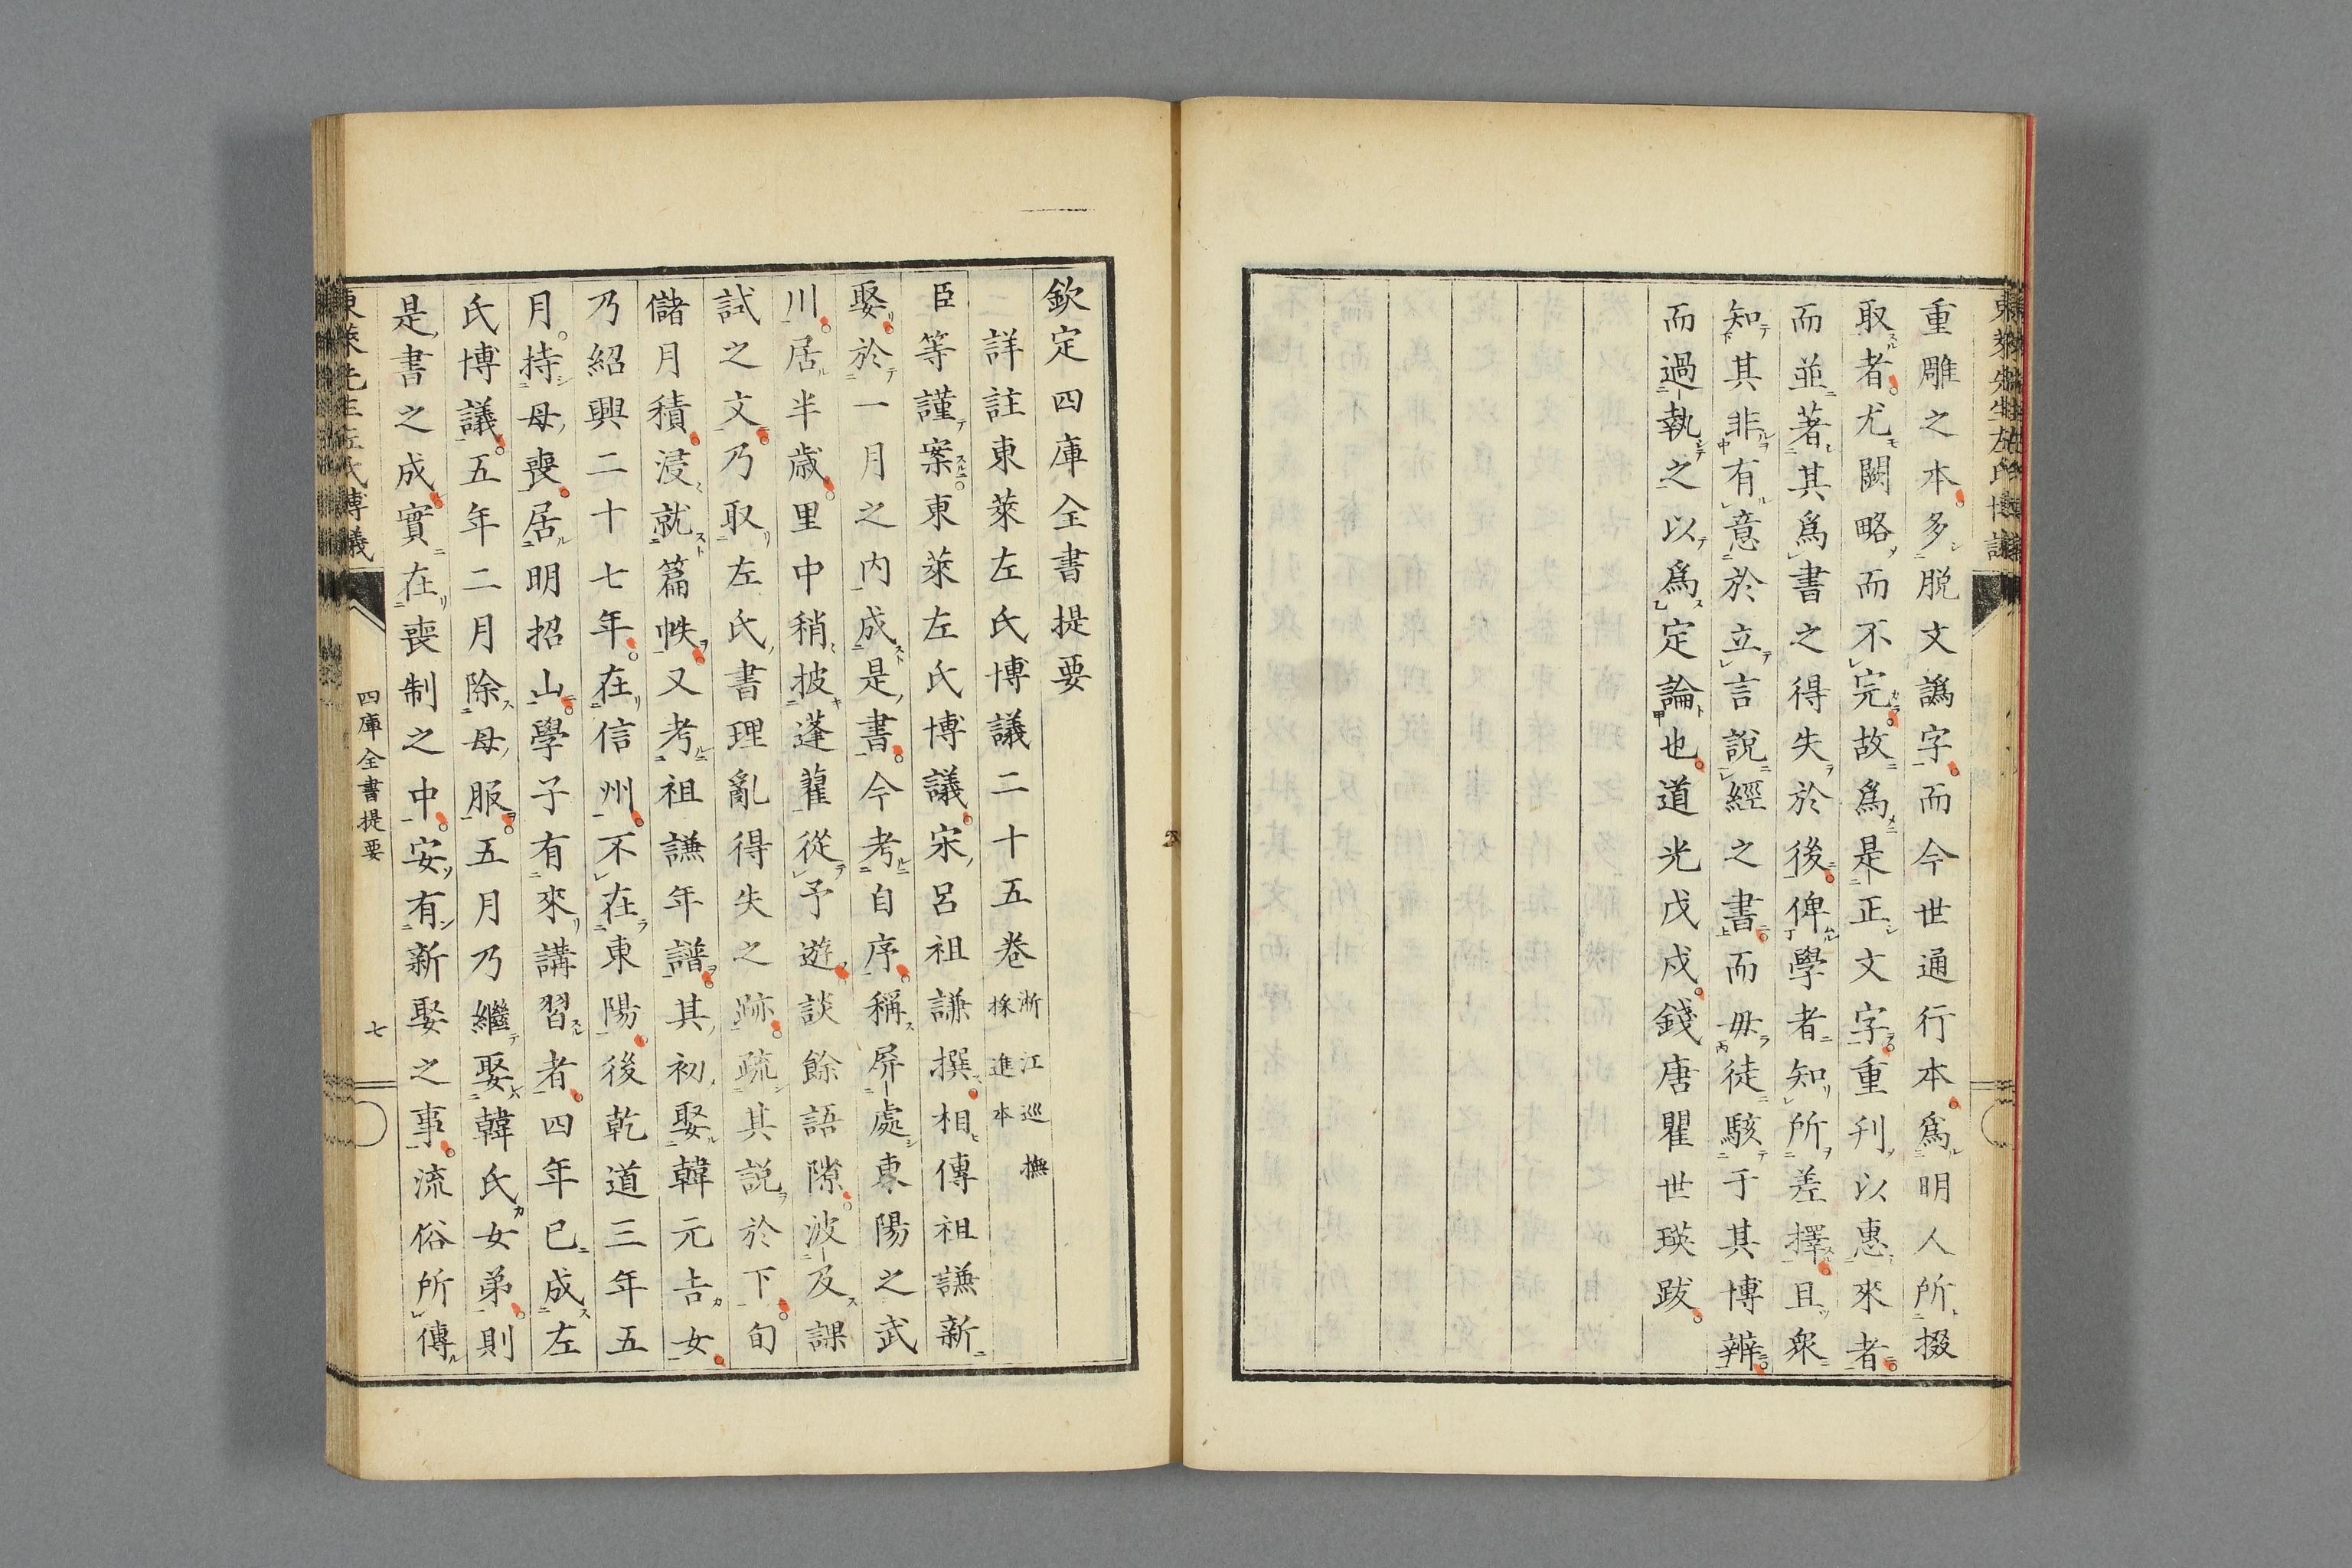 重雕之本多脱文譌字而今世通行本爲明人所掇
取者尤闕略而不完故爲是正文字重刋以惠來者
而並著其爲書之得失於後俾學者知所差擇且衆
知其非有意於立言說經之書而毋徒駭于其博辨
而過執之以爲定論也道光戊戌錢唐瞿世瑛跋
欽定四庫全書提要
詳註東萊左氏博議二十五卷 浙江巡撫採進本
臣等謹案東萊左氏博議宋呂祖謙撰相傳祖謙新
娶於一月之内成是書今考自序稱屏處東陽之武
川居半歲里中稍披蓬藋從予遊談餘語隙波及課
試之文乃取左氏書理亂得失之跡疏其説於下旬
儲月積浸就篇帙又考祖謙年譜其初娶韓元吉女
乃紹興二十七年在信州不在東陽後乾道三年五
月持母喪居明招山學子有來講習者四年已成左
氏博議五年二月除母服五月乃繼娶韓氏女弟則
是書之成實在喪制之中安有新娶之事流俗所傳
東萊先生左氏博議
四庫全書提要
七